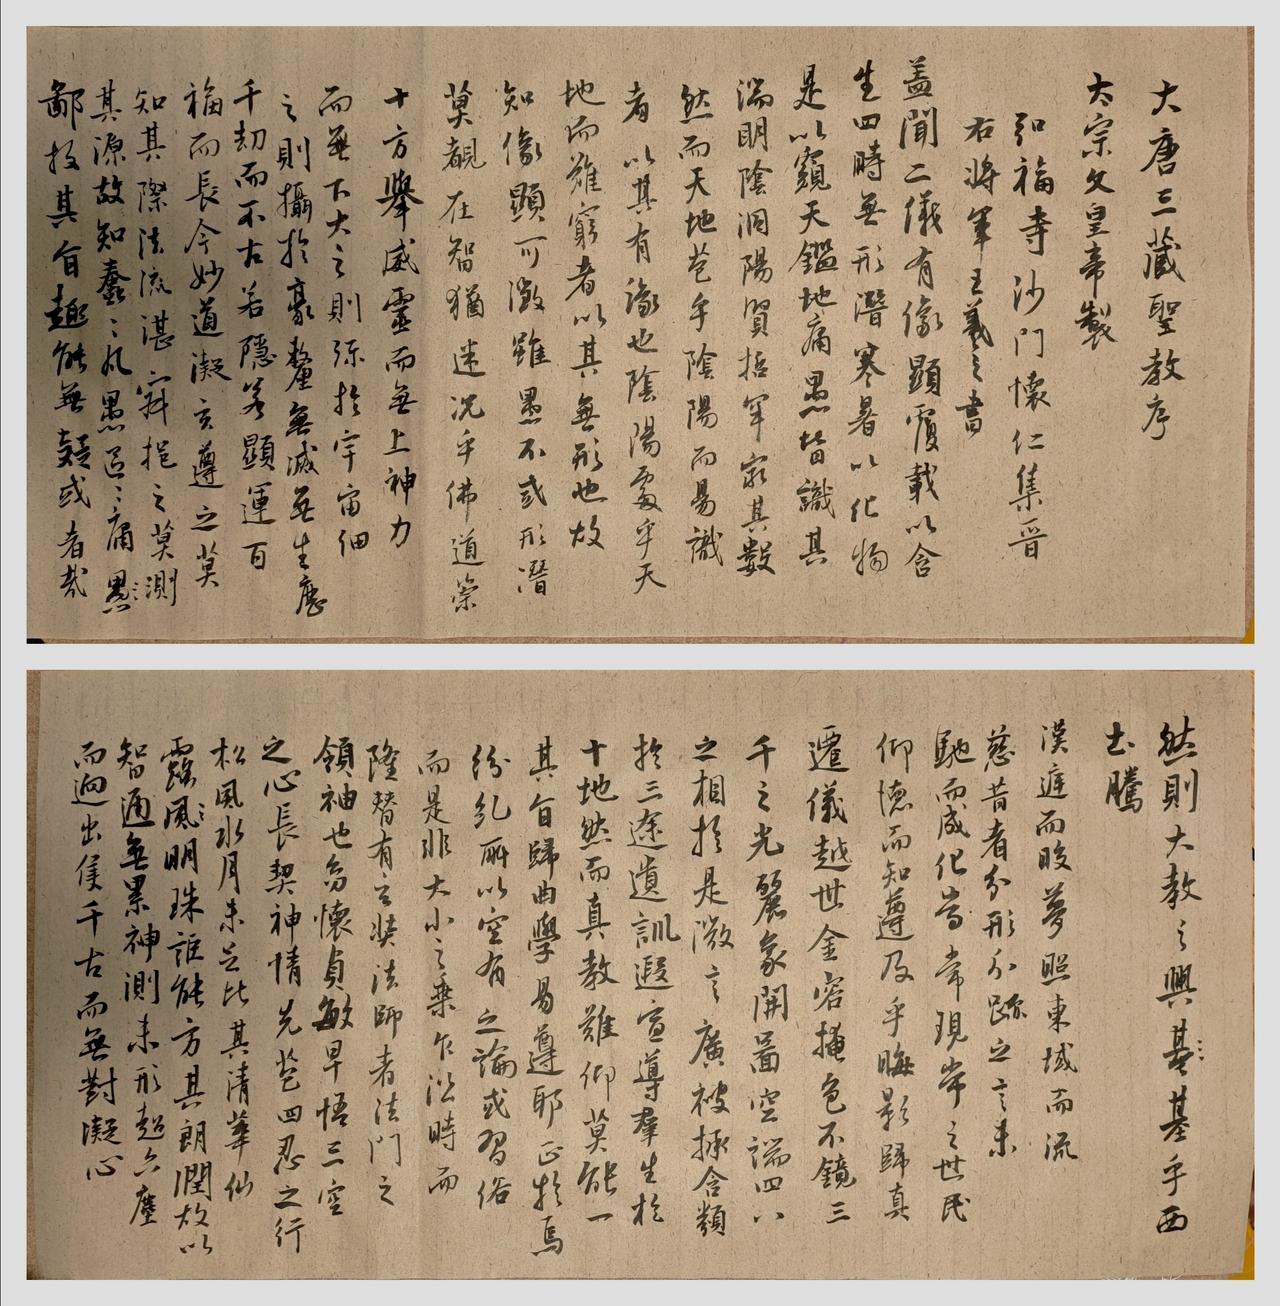 大唐三藏聖教序
太宗文皇帝製
弘福寺沙門懷仁集晋
右將軍王羲之書
蓋聞二儀有像顯覆載以含
生四時無形潛寒暑以化物
是以窺天鑑地庸愚皆識其
端明陰洞陽賢哲罕窮其數
然而天地苞乎陰陽而易識
者以其有像也陰陽處乎天
地而難窮者以其無形也故
知像顯可徵雖愚不惑形潛
莫覩在智猶迷況乎佛道崇
十方舉威靈而無上神力
而無下大之則弥於宇宙細
之則攝於豪釐無滅無生歷
千劫而不古若隱若顯運百
福而長今妙道凝玄遵之莫
知其際法流湛寂挹之莫測
其源故知蠢々凡愚區々庸愚
鄙投其旨趣能無疑或者哉
然則大教之興基基乎西
土騰
漢庭而皎夢照東域而流
慈昔者分形分跡之言未
馳而成化當常現常之世民
仰德而知遵及乎晦影歸真
遷儀越世金容掩色不鏡三
千之光麗象開圖空端四八
之相於是微言廣被拯含類
於三途遺訓遐宣導羣生於
十地然而真教難仰莫能一
其旨歸曲學易遵耶正於焉
紛糺所以空有之論或習俗
而是非大小之乘乍沿時而
隆替有玄奘法師者法門之
領袖也幼懷貞敏早悟三空
之心長契神情先苞四忍之行
松風水月未足比其清華仙
露風明珠詎能方其朗潤故以
智通無累神測未形超六塵
而迥出隻千古而無對凝心